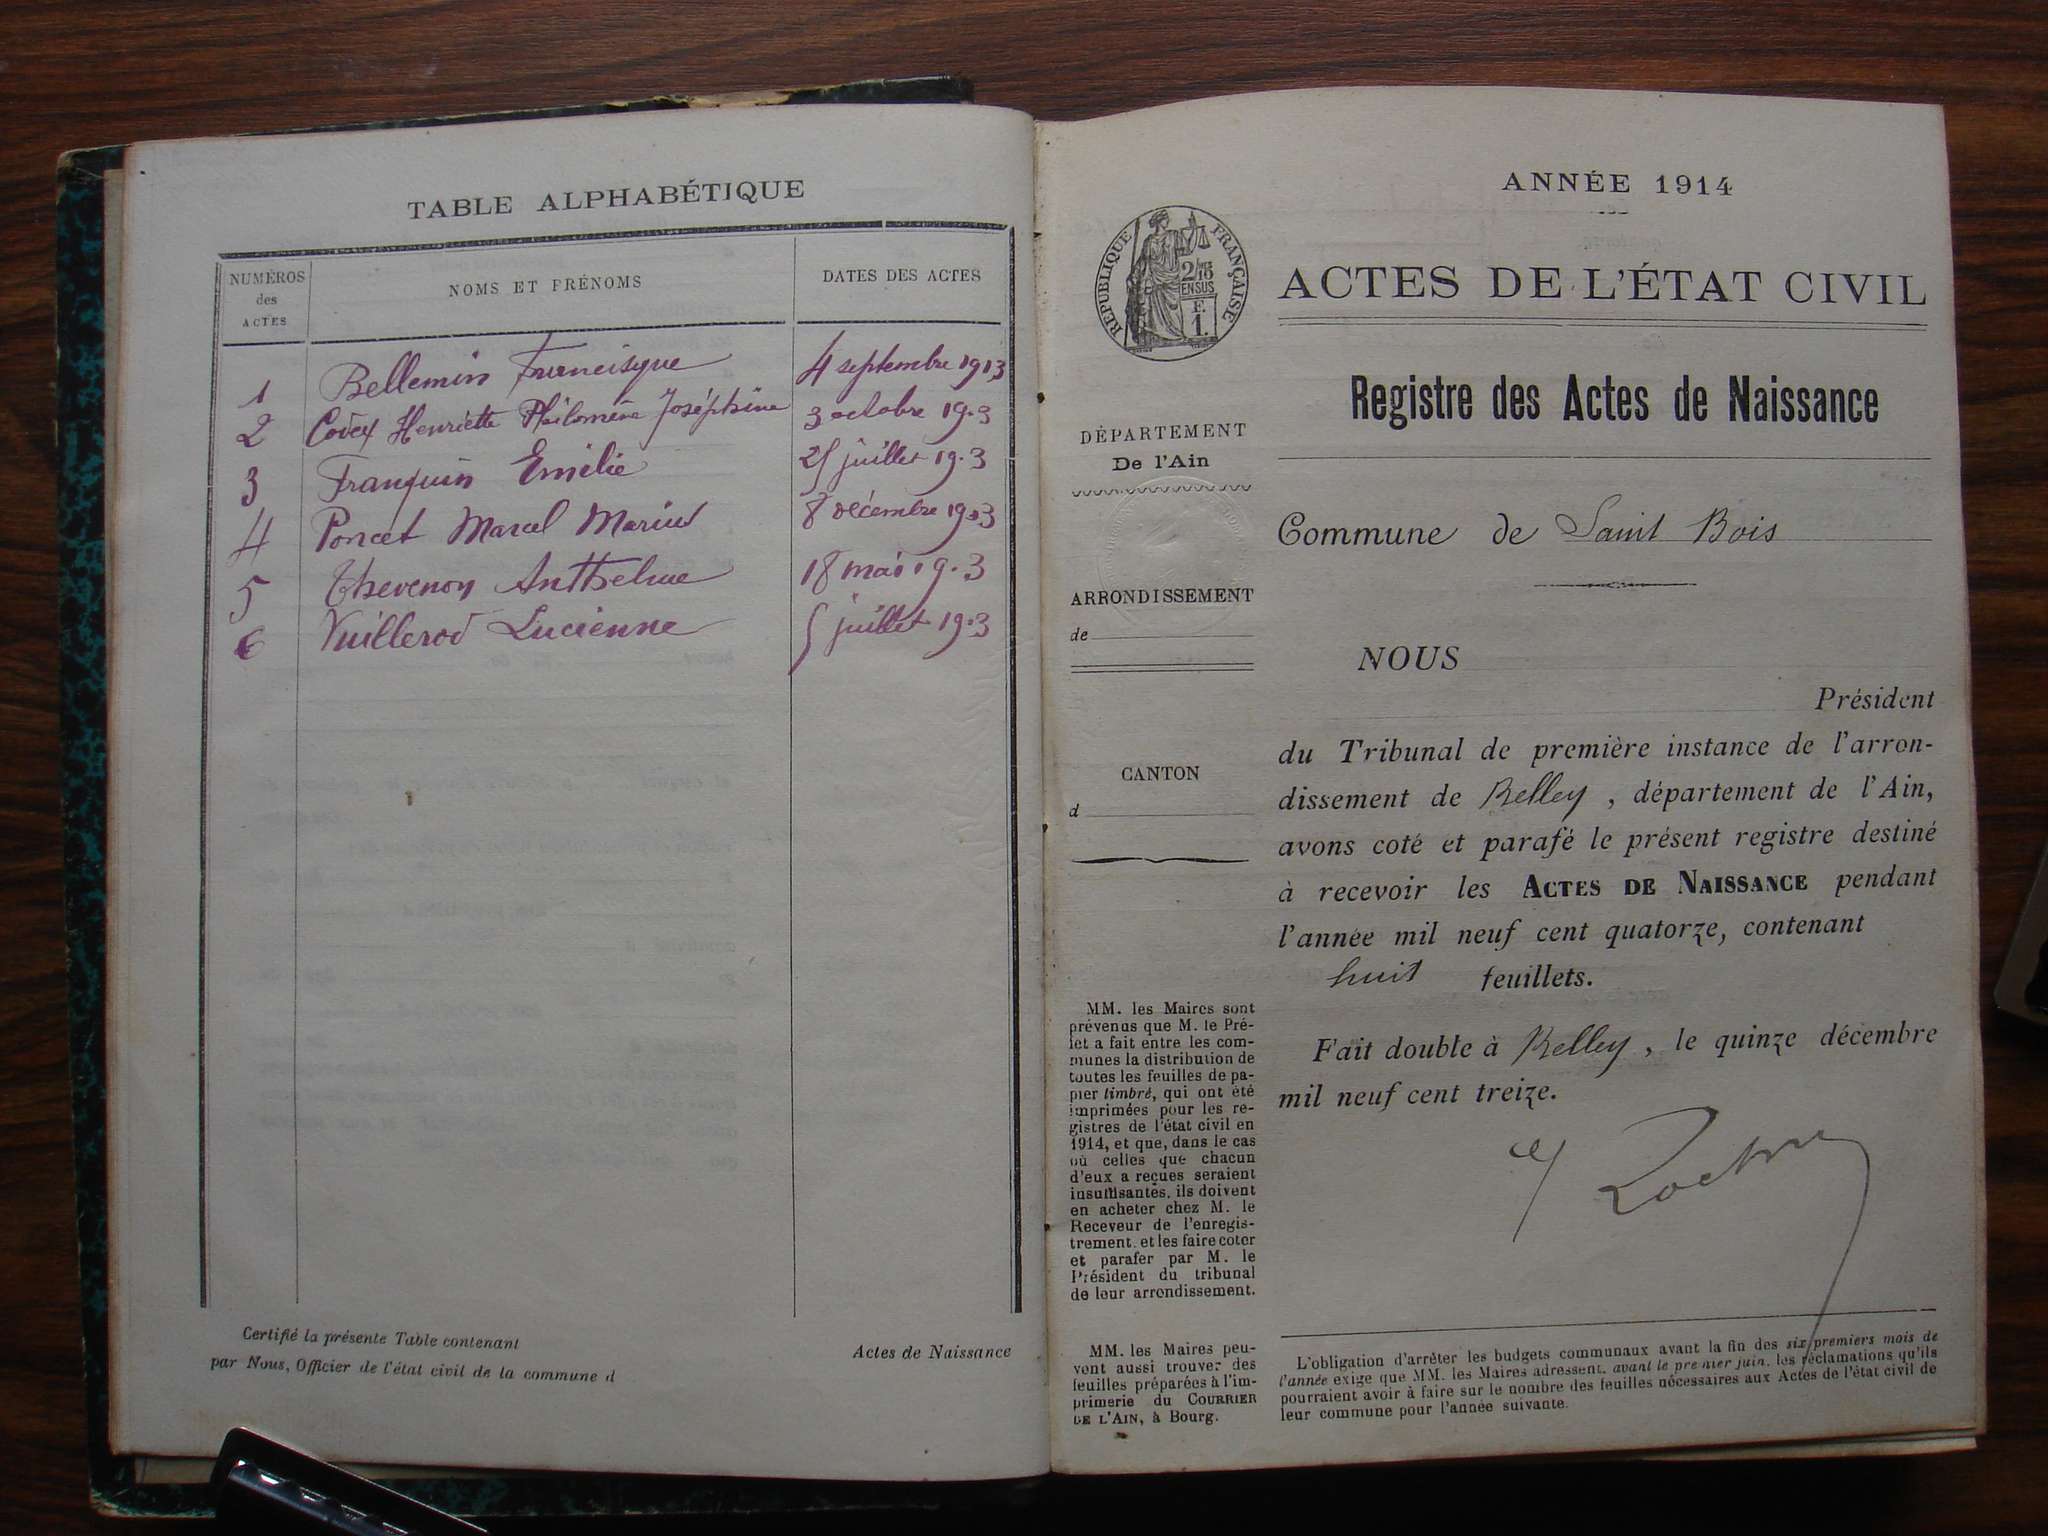 TABLE ALPHABÉTIQUE
NUMÉROS des ACTES
NOMS ET PRÉNOMS
DATES DES ACTES
1 Bellemin Francisque 4 septembre 1913
2 Coverx Henriette Philomène Joséphine 3 octobre 19.3
3 Franquin Emélie 25 juillet 19.3
4 Poncet Marcel Marius 8 décembre 1913
5 Thevenon Anthelme 18 mai 19.3
6 Vuillerod Lucienne 5 juillet 19.3
Certifié la présente Table contenant
par Nous, Officier de l'état civil de la commune d
Actes de Naissance
ANNÉE 1914
RÉPUBLIQUE FRANÇAISE
2/10
EN SUS
F.
1.
ACTES DE L'ÉTAT CIVIL
Registre des Actes de Naissance
DÉPARTEMENT
De l'Ain
ARRONDISSEMENT
de
CANTON
d
Commune de Saint Bois
NOUS
Président
du Tribunal de première instance de l'arron-
dissement de Belley, département de l'Ain,
avons coté et parafé le présent registre destiné
à recevoir les ACTES DE NAISSANCE pendant
l'année mil neuf cent quatorze, contenant
huit feuillets.
Fait double à Belley, le quinze décembre
mil neuf cent treize.
MM. les Maires sont
prévenus que M. le Pré-
fet a fait entre les com-
munes la distribution de
toutes les feuilles de pa-
pier timbré, qui ont été
imprimées pour les re-
gistres de l'état civil en
1914, et que, dans le cas
où celles que chacun
d'eux a reçues seraient
insuffisantes, ils doivent
en acheter chez M. le
Receveur de l'enregis-
trement, et les faire coter
et parafer par M. le
Président du tribunal
de leur arrondissement.
MM. les Maires peu-
vent aussi trouver des
feuilles préparées à l'im-
primerie du COURRIER
DE L'AIN, à Bourg.
L'obligation d'arrêter les budgets communaux avant la fin des six premiers mois de
l'année exige que MM. les Maires adressent, avant le premier juin, les réclamations qu'ils
pourraient avoir à faire sur le nombre des feuilles nécessaires aux Actes de l'état civil de
leur commune pour l'année suivante.